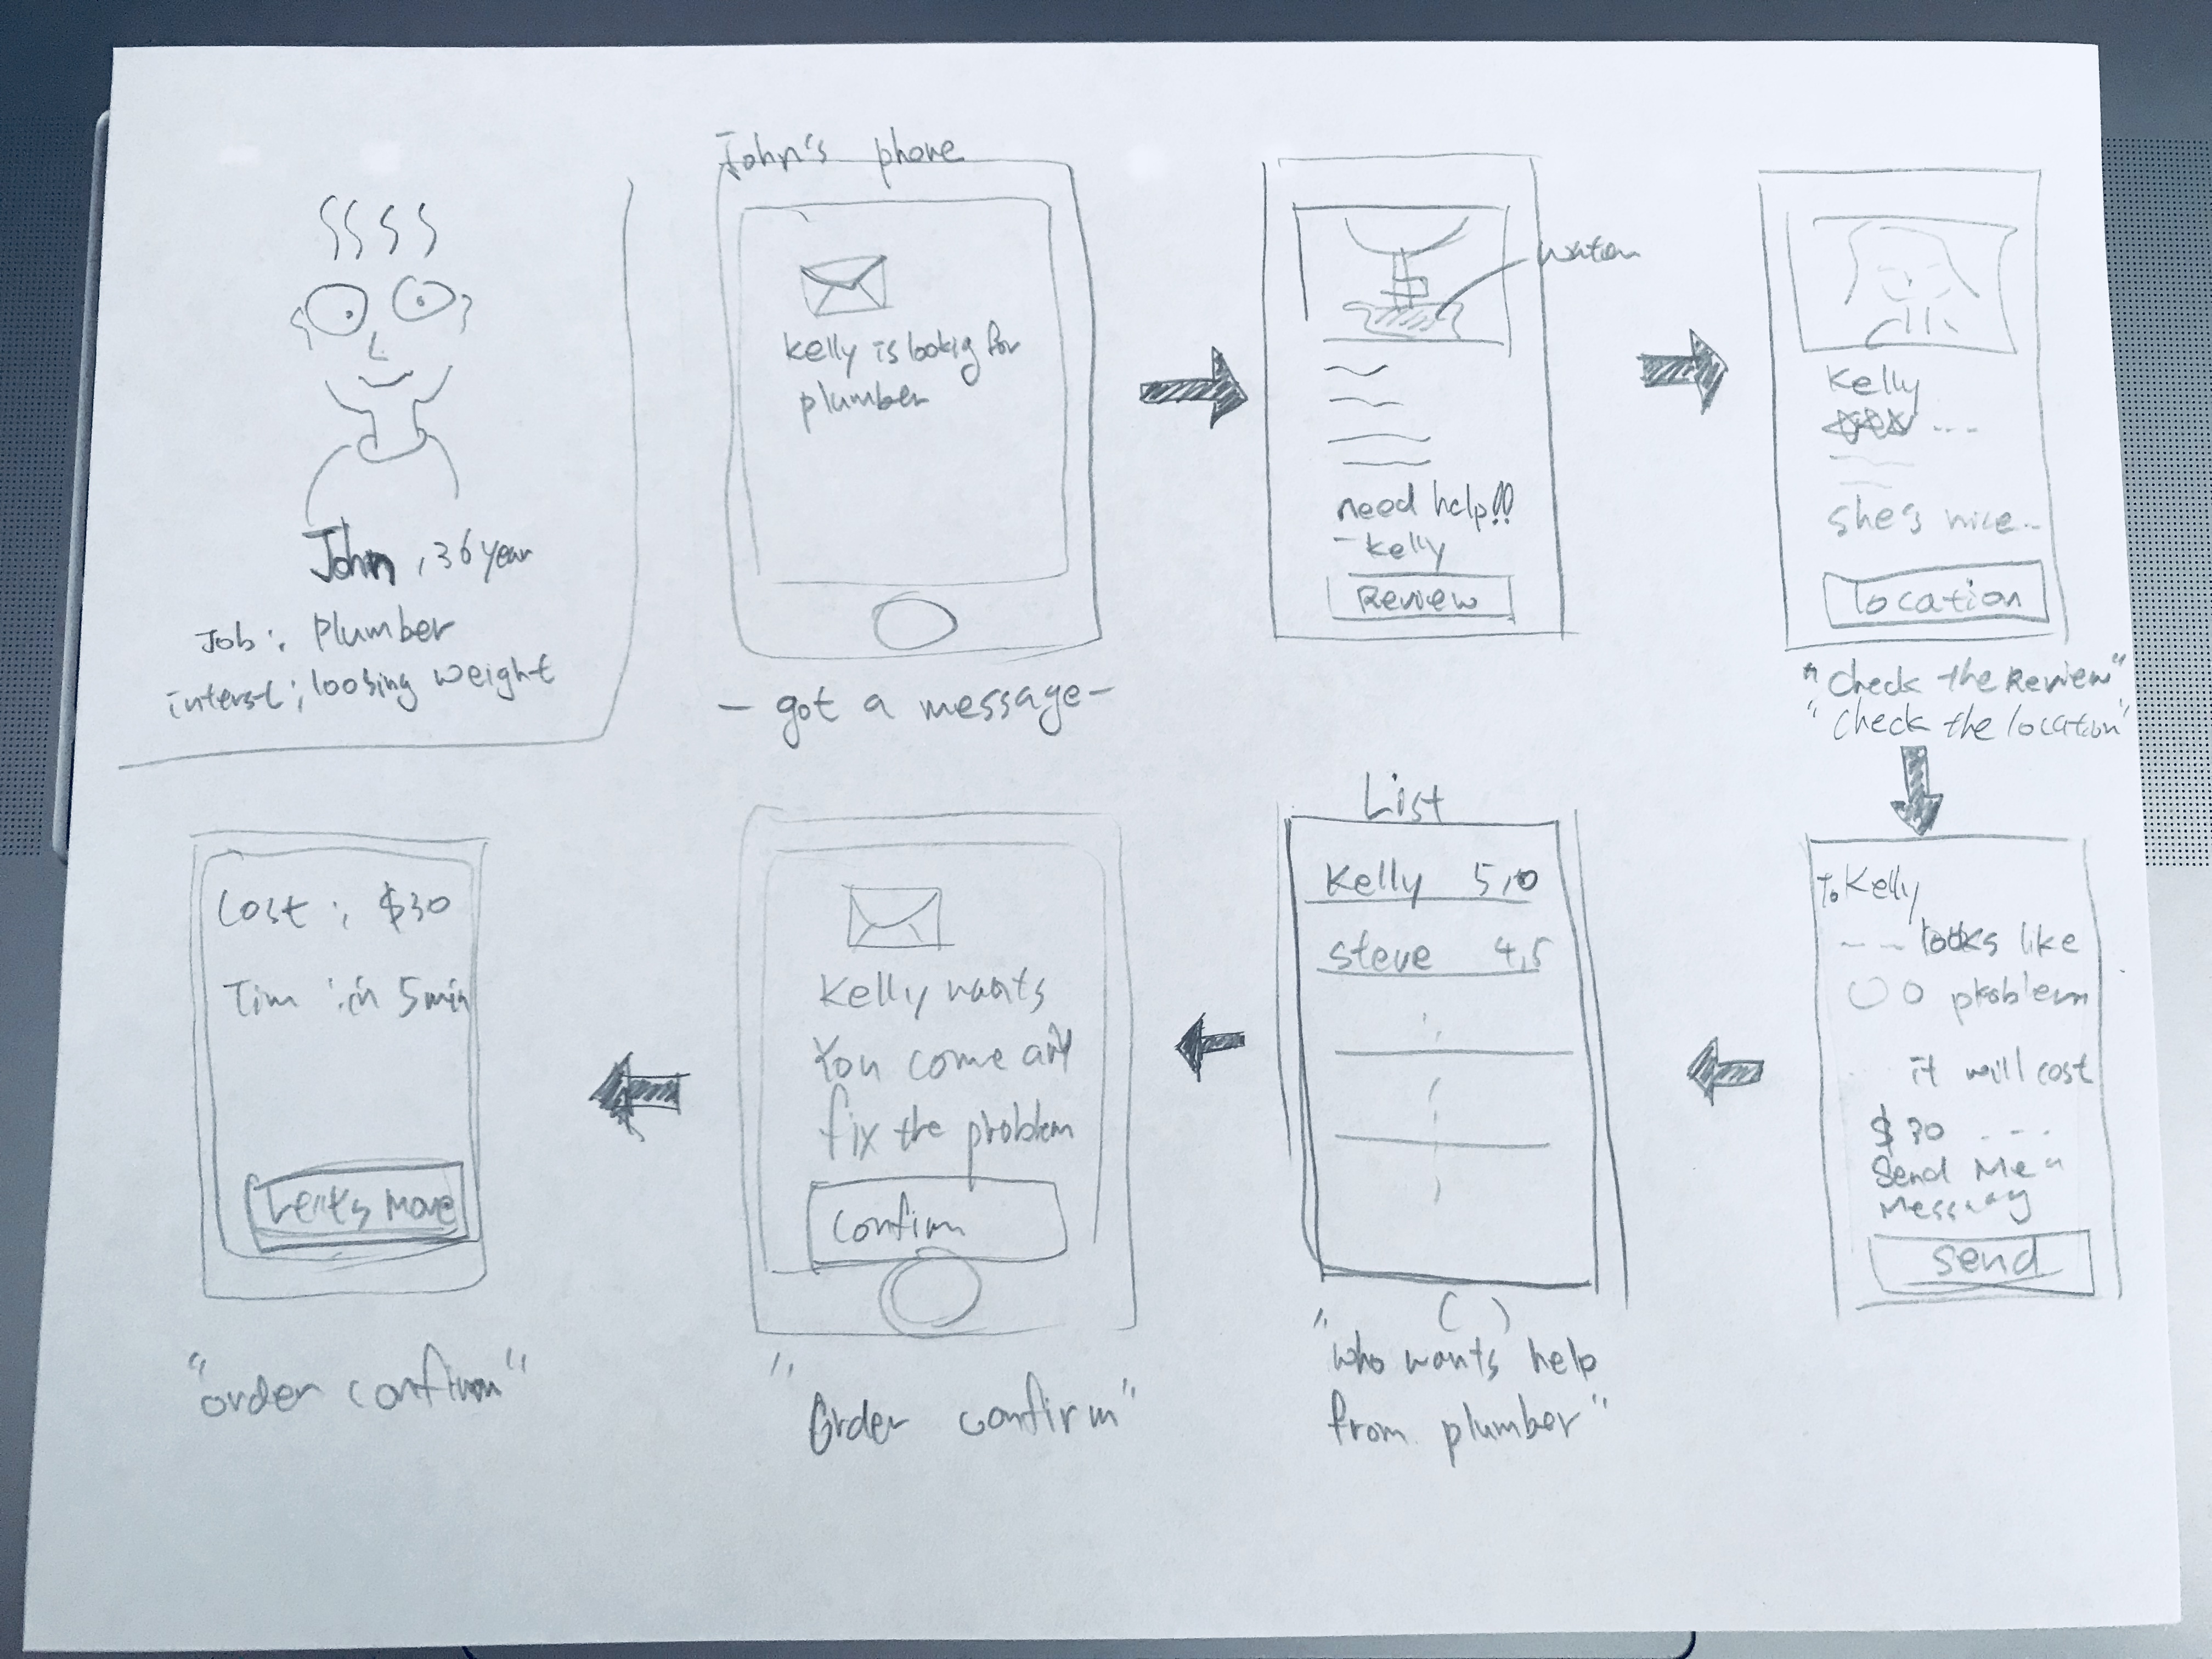 John, 36 year
Job: Plumber
interst; loobing weight
John's phone
Kelly is lookig for
plumber
- got a message -
water
need help!!
- Kelly
Review
Kelly
she's nice..
Location
"Check the Review"
"Check the location"
To Kelly
-- looks like
OO problem
it will cost
$30 ---
Send Me a
Message
Send
List
Kelly 5,0
steve 4,5
( )
"who wants help
from plumber"
Kelly wants
You come and
fix the problem
Confirm
"Order confirm"
Cost: $30
Tim: in 5min
Let's move
"order confirm"